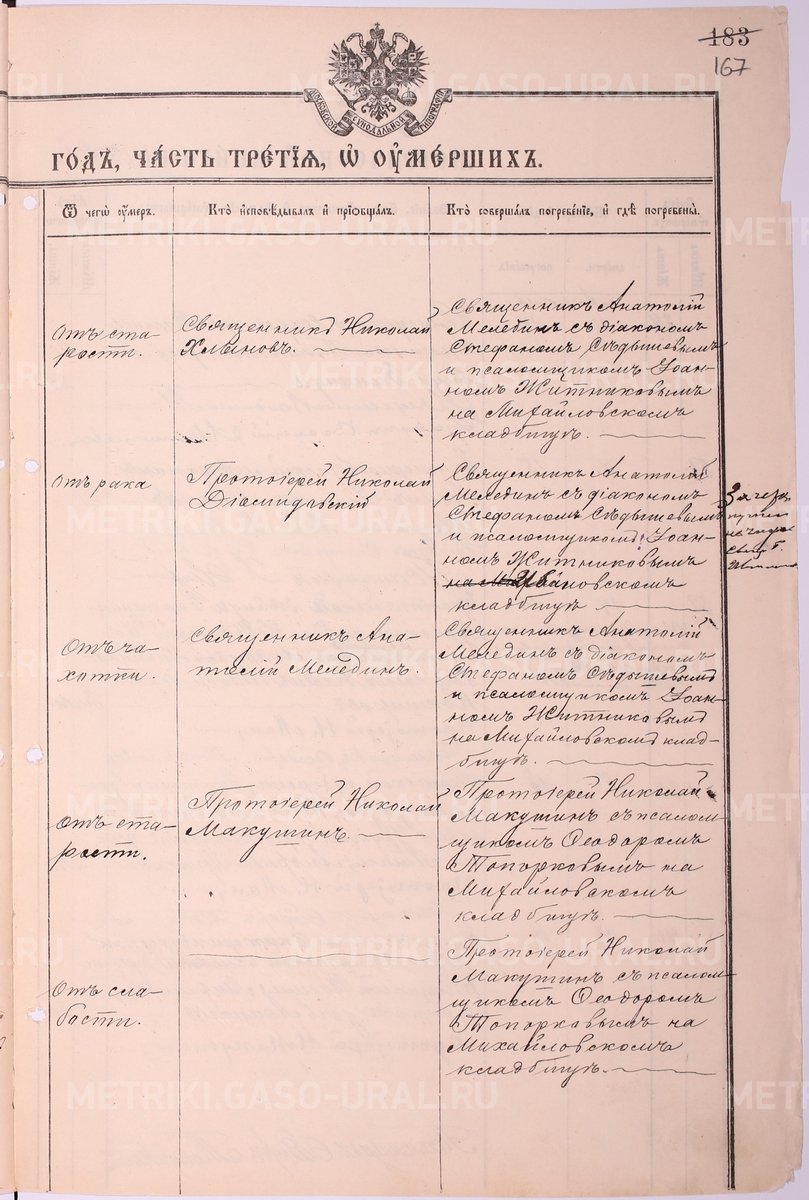 183
167
МОСКОВСКОЙ СѴНОДАЛЬНОЙ ТИПОГРАФІИ
го́дъ, ча́сть тре́тїѧ, ѡ҆ оу҆ме́ршихъ.
Ѿ чегѡ̀ оу҆́меръ.
Кто̀ и҆сповѣ́дывалъ и҆ прїѡбща́лъ.
Кто̀ соверша́лъ погребе́нїе, и҆ гдѣ̀ погребены̀.
Отъ ста-
рости.
Священникъ Николай
Хлыновъ.
Священникъ Анатолій
Мелединъ съ діакономъ
Стефаномъ Сѣдышевымъ
и псаломщикомъ Іоан-
номъ Житниковымъ
на Михайловскомъ
кладбищѣ.
Отъ рака
Протоіерей Николай
Діомидовскій
Священникъ Анатолій
Мелединъ съ діакономъ
Стефаномъ Сѣдышевымъ
и псаломщикомъ Іоан-
номъ Житниковымъ
на Ивановскомъ
кладбищѣ
Отъ ча-
хотки.
Священникъ Ана-
толій Мелединъ.
Священникъ Анатолій
Мелединъ съ діакономъ
Стефаномъ Сѣдышевымъ
и псаломщикомъ Іоан-
номъ Житниковымъ
на Михайловскомъ клад-
бищѣ.
Отъ ста-
рости.
Протоіерей Николай
Макушинъ.
Протоіерей Николай
Макушинъ съ псалом-
щикомъ Ѳеодоромъ
Топорковымъ на
Михайловскомъ
кладбищѣ.
Отъ сла-
бости.
Протоіерей Николай
Макушинъ съ псалом-
щикомъ Ѳеодоромъ
Топорковымъ на
Михайловскомъ
кладбищѣ.
METRIKI.GASO-URAL.RU